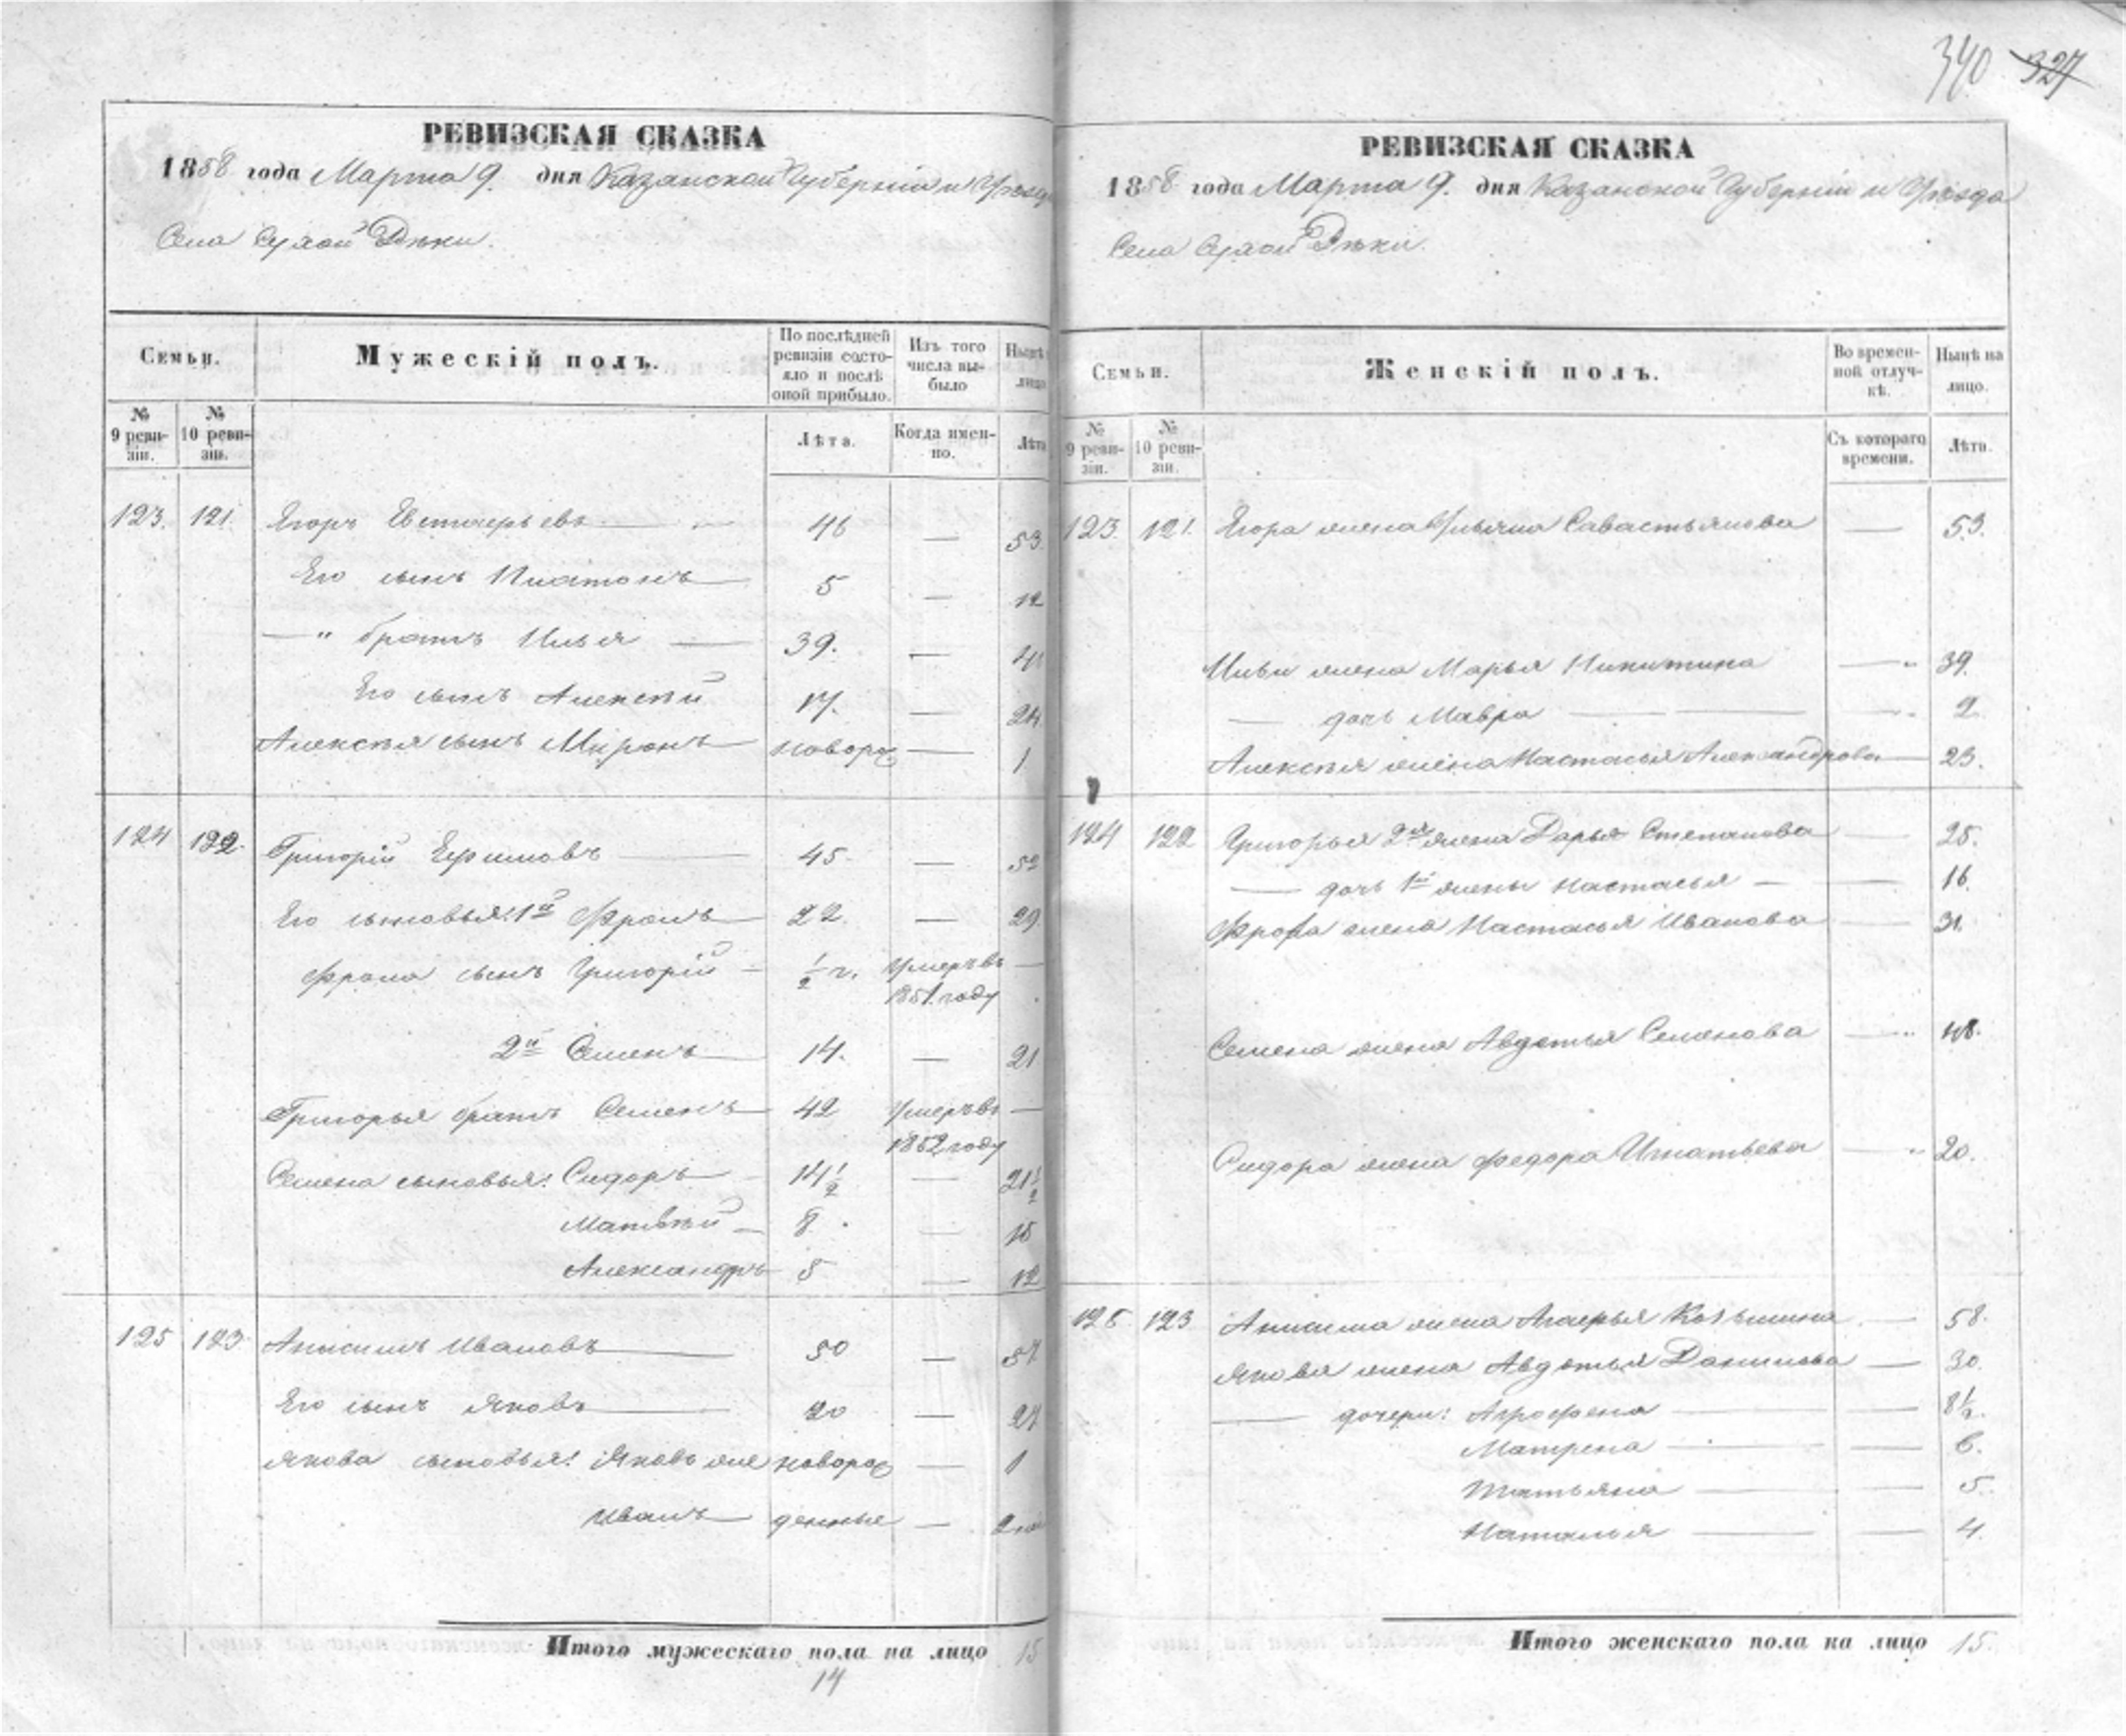 340 327
РЕВИЗСКАЯ СКАЗКА
1858 года Марта 9. дня Казанской Губерніи и Уѣзда
Села Сухой Рѣки.
Семьи.
Мужескій полъ.
По послѣдней ревизіи состояло и послѣ оной прибыло.
Изъ того числа выбыло
Нынѣ лицо
№ 9 ревизіи.
№ 10 ревизіи.
Лѣта.
Когда именно.
Лѣта
123. 121. Егоръ Евстафьевъ 46 — 53.
Его сынъ Платонъ 5 — 12
— " братъ Илья — 39. —
Его сынъ Алексѣй 17. — 24
Алексѣя сынъ Миронъ новорож — 1
124 122. Григорій Ефимовъ 45 — 52
Его сыновья: 1й Фролъ 22. — 29.
Фрола сынъ Григорій — ½ г. Умеръ въ —
1851. году
2й Семенъ 14. — 21
Григорья братъ Семенъ 42 Умеръ въ —
1852 году
Семена сыновья: Сидоръ 14½ — 21½
Матвѣй 8. — 15
Александръ 5 — 12
125 123 Анисимъ Ивановъ 50 — 57.
Его сынъ Яковъ 20 — 27
Якова сыновья: Яковъ же новорож — 1
Иванъ денные —
Итого мужескаго пола на лицо 15
14
РЕВИЗСКАЯ СКАЗКА
1858 года Марта 9. дня Казанской Губерніи и Уѣзда
Села Сухой Рѣки.
Семьи.
Женскій полъ.
Во временной отлучкѣ.
Нынѣ на лицо.
№ 9 ревизіи.
№ 10 ревизіи.
Съ котораго времени.
Лѣта.
123. 121. Егора жена Ульяна Савастьянова — 53.
Ильи жена Марья Никитина — 39.
— дочь Мавра — 2
Алексѣя жена Настасья Александрова — 23.
124 122 Григорья 2я жена Дарья Степанова — 25.
— дочь 1й жены Настасья — 16.
Фрола жена Настасья Иванова — 31.
Семена жена Авдотья Семенова —
Сидора жена Федора Игнатьева — 20.
125 123 Анисима жена Агафья Козьмина — 58.
Якова жена Авдотья Данилова — 30.
— дочери: Аграфена — 8½.
Матрена — 6.
Татьяна — 5.
Наталья — 4.
Итого женскаго пола на лицо 15.